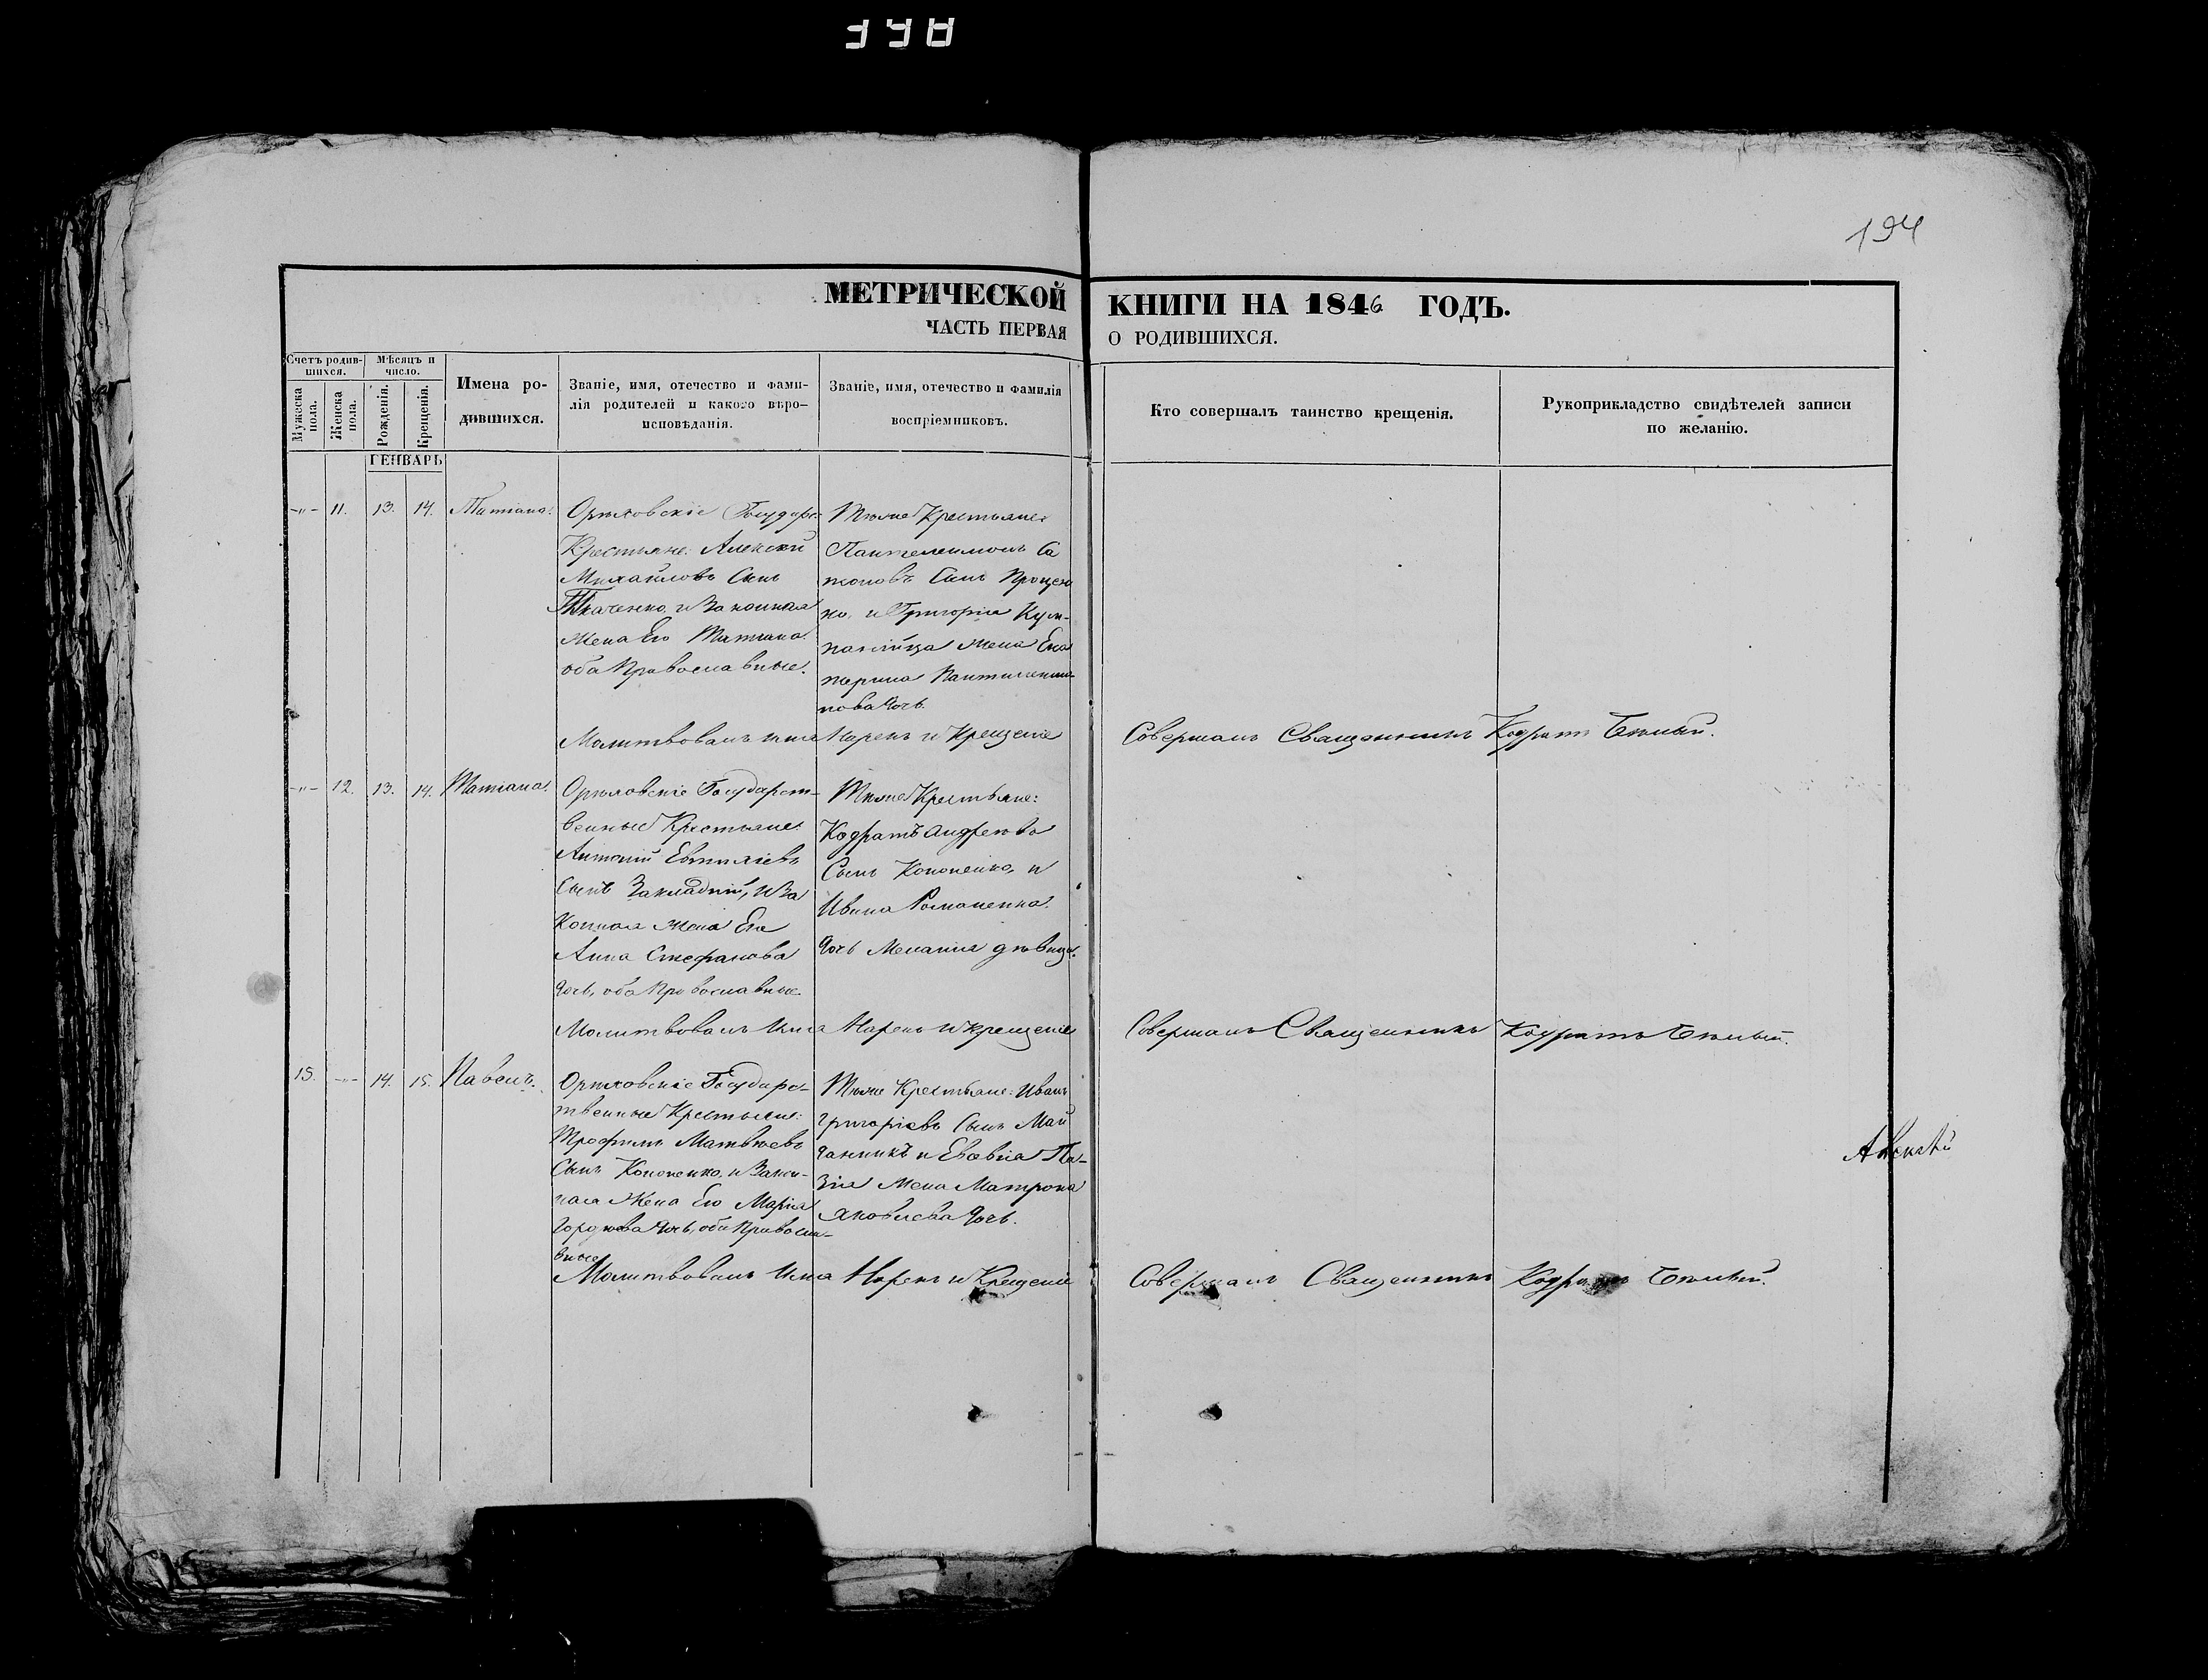 398
194
МЕТРИЧЕСКОЙ КНИГИ НА 1846 ГОДЪ.
ЧАСТЬ ПЕРВАЯ О РОДИВШИХСЯ.
Счетъ родив-
шихся.
Мужеска пола.
Женска пола.
Мѣсяцъ и
число.
Рожденія.
Крещенія.
Имена ро-
дившихся.
Званіе, имя, отечество и фами-
лія родителей и какого вѣро-
исповѣданія.
Званіе, имя, отечество и фамилія
воспріемниковъ.
Кто совершалъ таинство крещенія.
Рукоприкладство свидѣтелей записи
по желанію.
ГЕНВАРЬ
-"- 11. 13. 14. Татіана.
Орѣховскіе Государ:
Крестьяне: Алексѣй
Михайловъ Сынъ
Ткаченко, и Законная
Жена Его Татіана
оба Православные.
Тѣже Крестьяне:
Пантелеимонъ Са
Сынъ Процен
ко, и Григорія
жена Ека
терина
пова дочь.
Молитвовалъ имя Нарекъ и Крещеніе Совершалъ Священникъ Кодратъ Бѣлый.
-"- 12. 13. 14. Татіана.
Орѣховскіе Государст-
венные Крестьяне:
Антоній
Сынъ Закладній, и За
конная жена Его
Анна Стефанова
дочь, оба Православные.
Тѣже Крестьяне:
Кодратъ Андреевъ
Сынъ Кононенко, и
Ивана Романенка
дочь Меланія дѣвица.
Молитвовалъ Имя Нарекъ и крещеніе Совершалъ Священникъ Кодратъ Бѣлый.
15. -"- 14. 15. Павелъ.
Орѣховскіе Государс-
твенные Крестьяне:
Трофимъ Матвѣевъ
Сынъ Кононенко, и Закон-
ная Жена Его Марія
Гордѣева дочь, оба Правосла-
вные
Тѣже Крестьяне: Иванъ
Григоріевъ Сынъ Май
данникъ и
жена Матрона
Яковлева дочь.
Молитвовалъ Имя Нарекъ и Крещеніе Совершалъ Священникъ Кодратъ Бѣлый.
Алексѣй